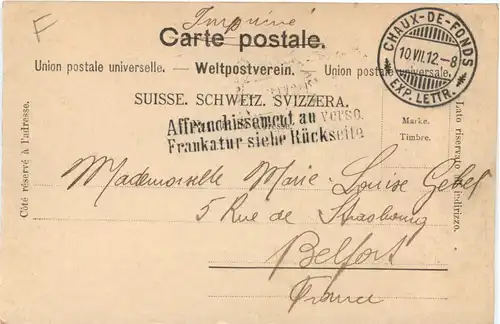 F
Imprimé
Carte postale.
Union postale universelle. — Weltpostverein. — Union postale universale.
SUISSE. SCHWEIZ. SVIZZERA.
CHAUX-DE-FONDS
10.VII.12-8
EXP. LETTR.
Affranchissement au verso.
Frankatur siehe Rückseite
Marke.
Timbre.
Côté réservé à l'adresse.
Lato riservato all'indirizzo.
Mademoiselle Marie-Louise Gebel
5 Rue de Strasbourg
Belfort
France